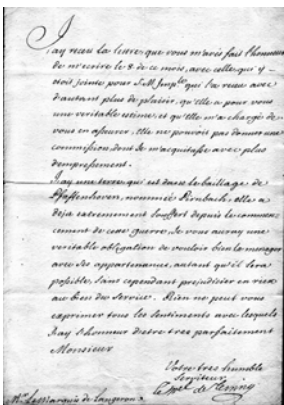 J'ay receu la lettre, que vous m'avés fait l'honneur
de m'ecrire le 8 de ce mois, avec celle, qui y
etoit jointe pour S. M. Imple qui l'a receu avec
d'autant plus de plaisir, qu'elle a pour vous
une veritable estime, et qu'elle m'a chargé de
vous en assurer, Elle ne pouvoit pas donner une
commission, dont je m'acquitasse avec plus
d'empressement.
J'ay une terre, qui est dans le bailliage de
Pfaffenhoven, nommée Pirnbach: elle a
deja extremement souffert depuis le commen,
cement de cette guerre, Je vous auray une
veritable obligation de vouloir bien la menager
avec ses appartenances, autant qu'il sera
possible, sans cependant prejudicier en rien
au bien du service. Rien ne peut vous
exprimer tous les sentiments avec lesquels
J'ay l'honneur d'estre tres parfaitement
Monsieur
Votre tres humble
Serviteur
le
de
Mr. Le Marquis de Langeron